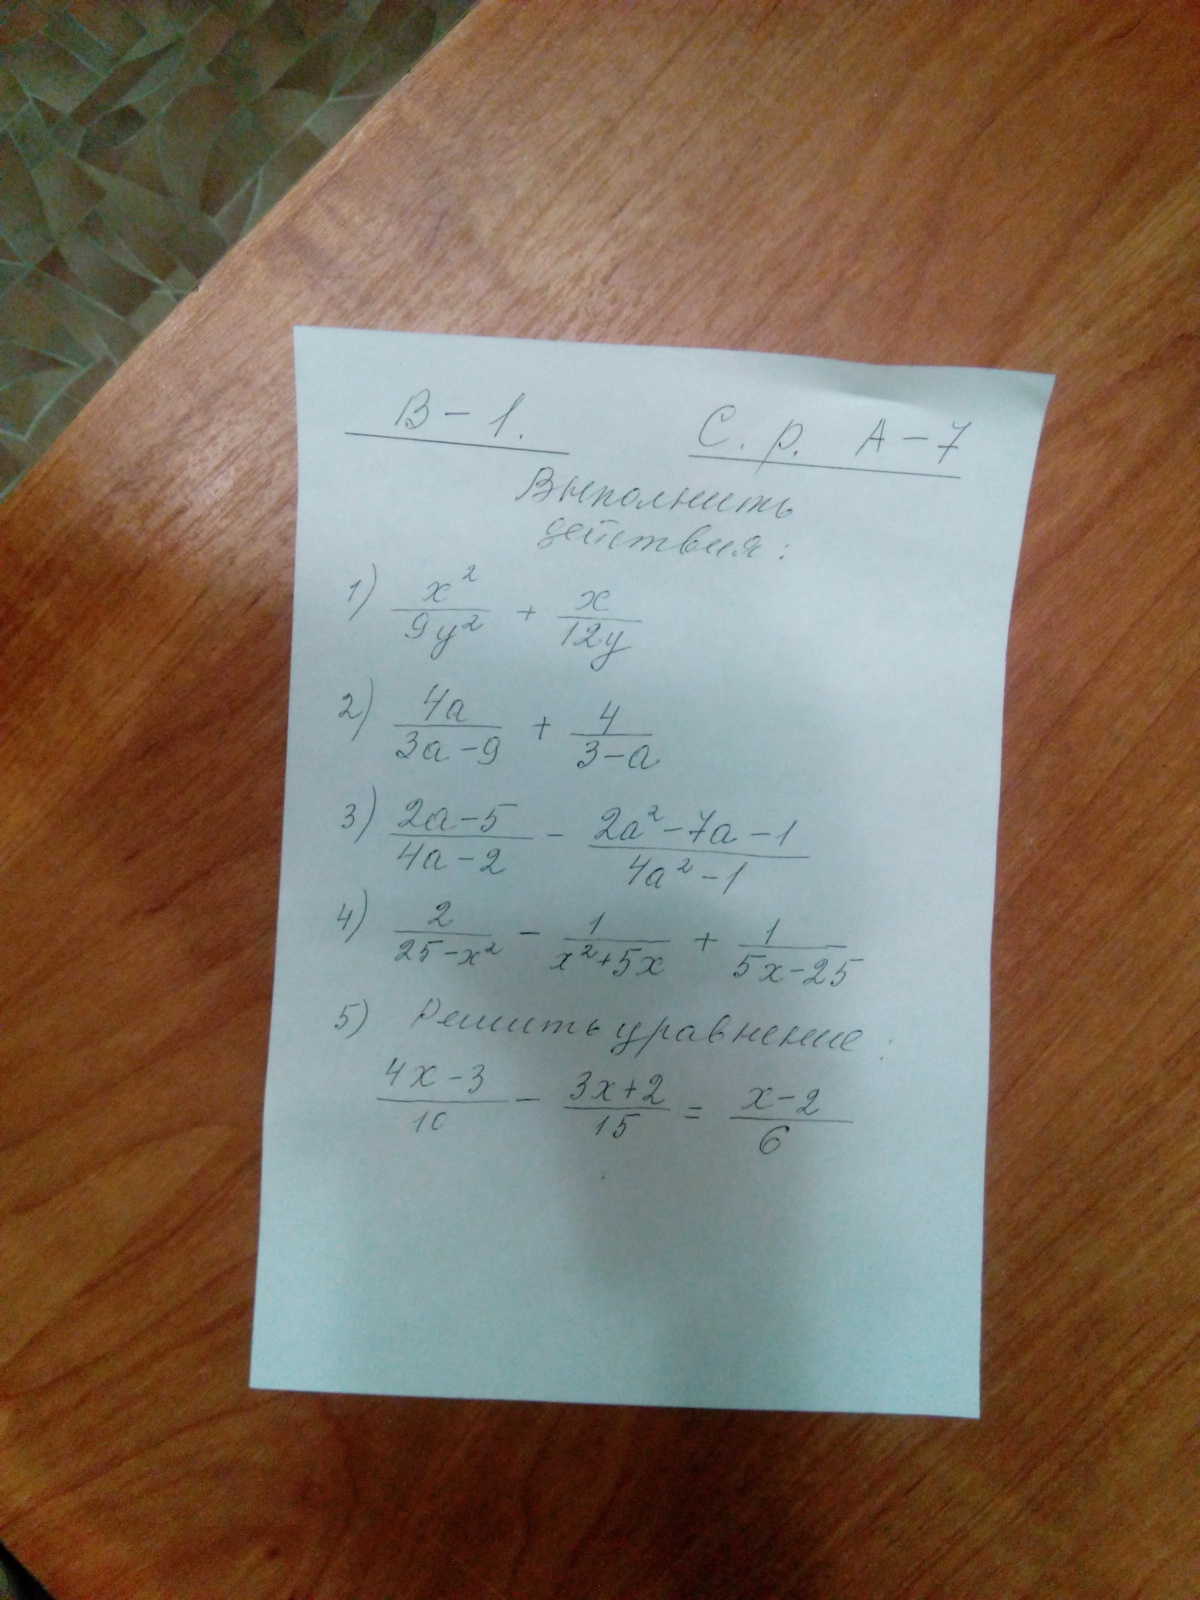 В - 1. С. р. А - 7
Выполнить
действия:
1) x²/9y² + x/12y
2) 4a/3a-9 + 4/3-a
3) 2a-5/4a-2 - 2a²-7a-1/4a²-1
4) 2/25-x² - 1/x²+5x + 1/5x-25
5) Решить уравнение:
4x-3/10 - 3x+2/15 = x-2/6